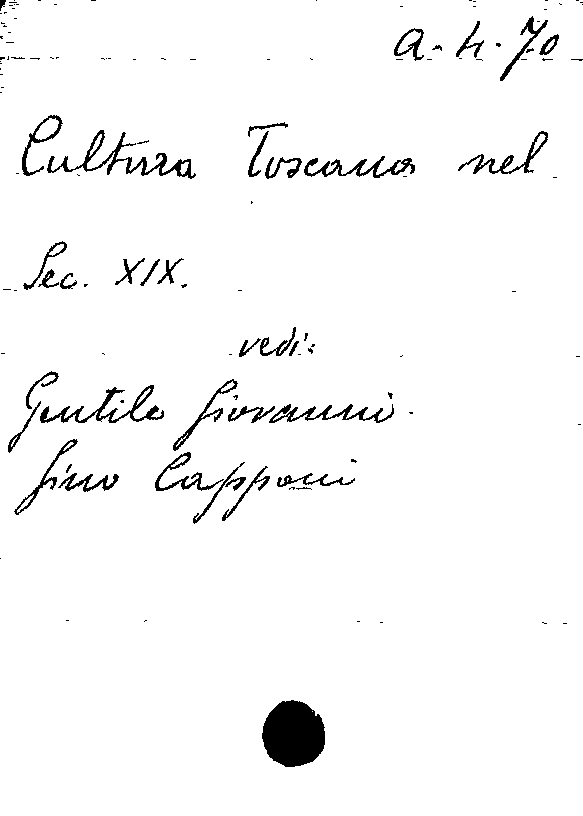 a. 4. 70
Cultura Toscana nel
Sec. XIX.
vedi:
Gentile Giovanni.
Gino Capponi